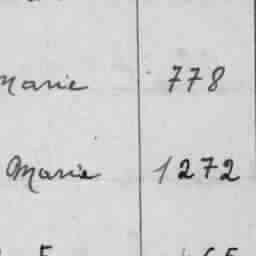 Marie 778
Marie 1272